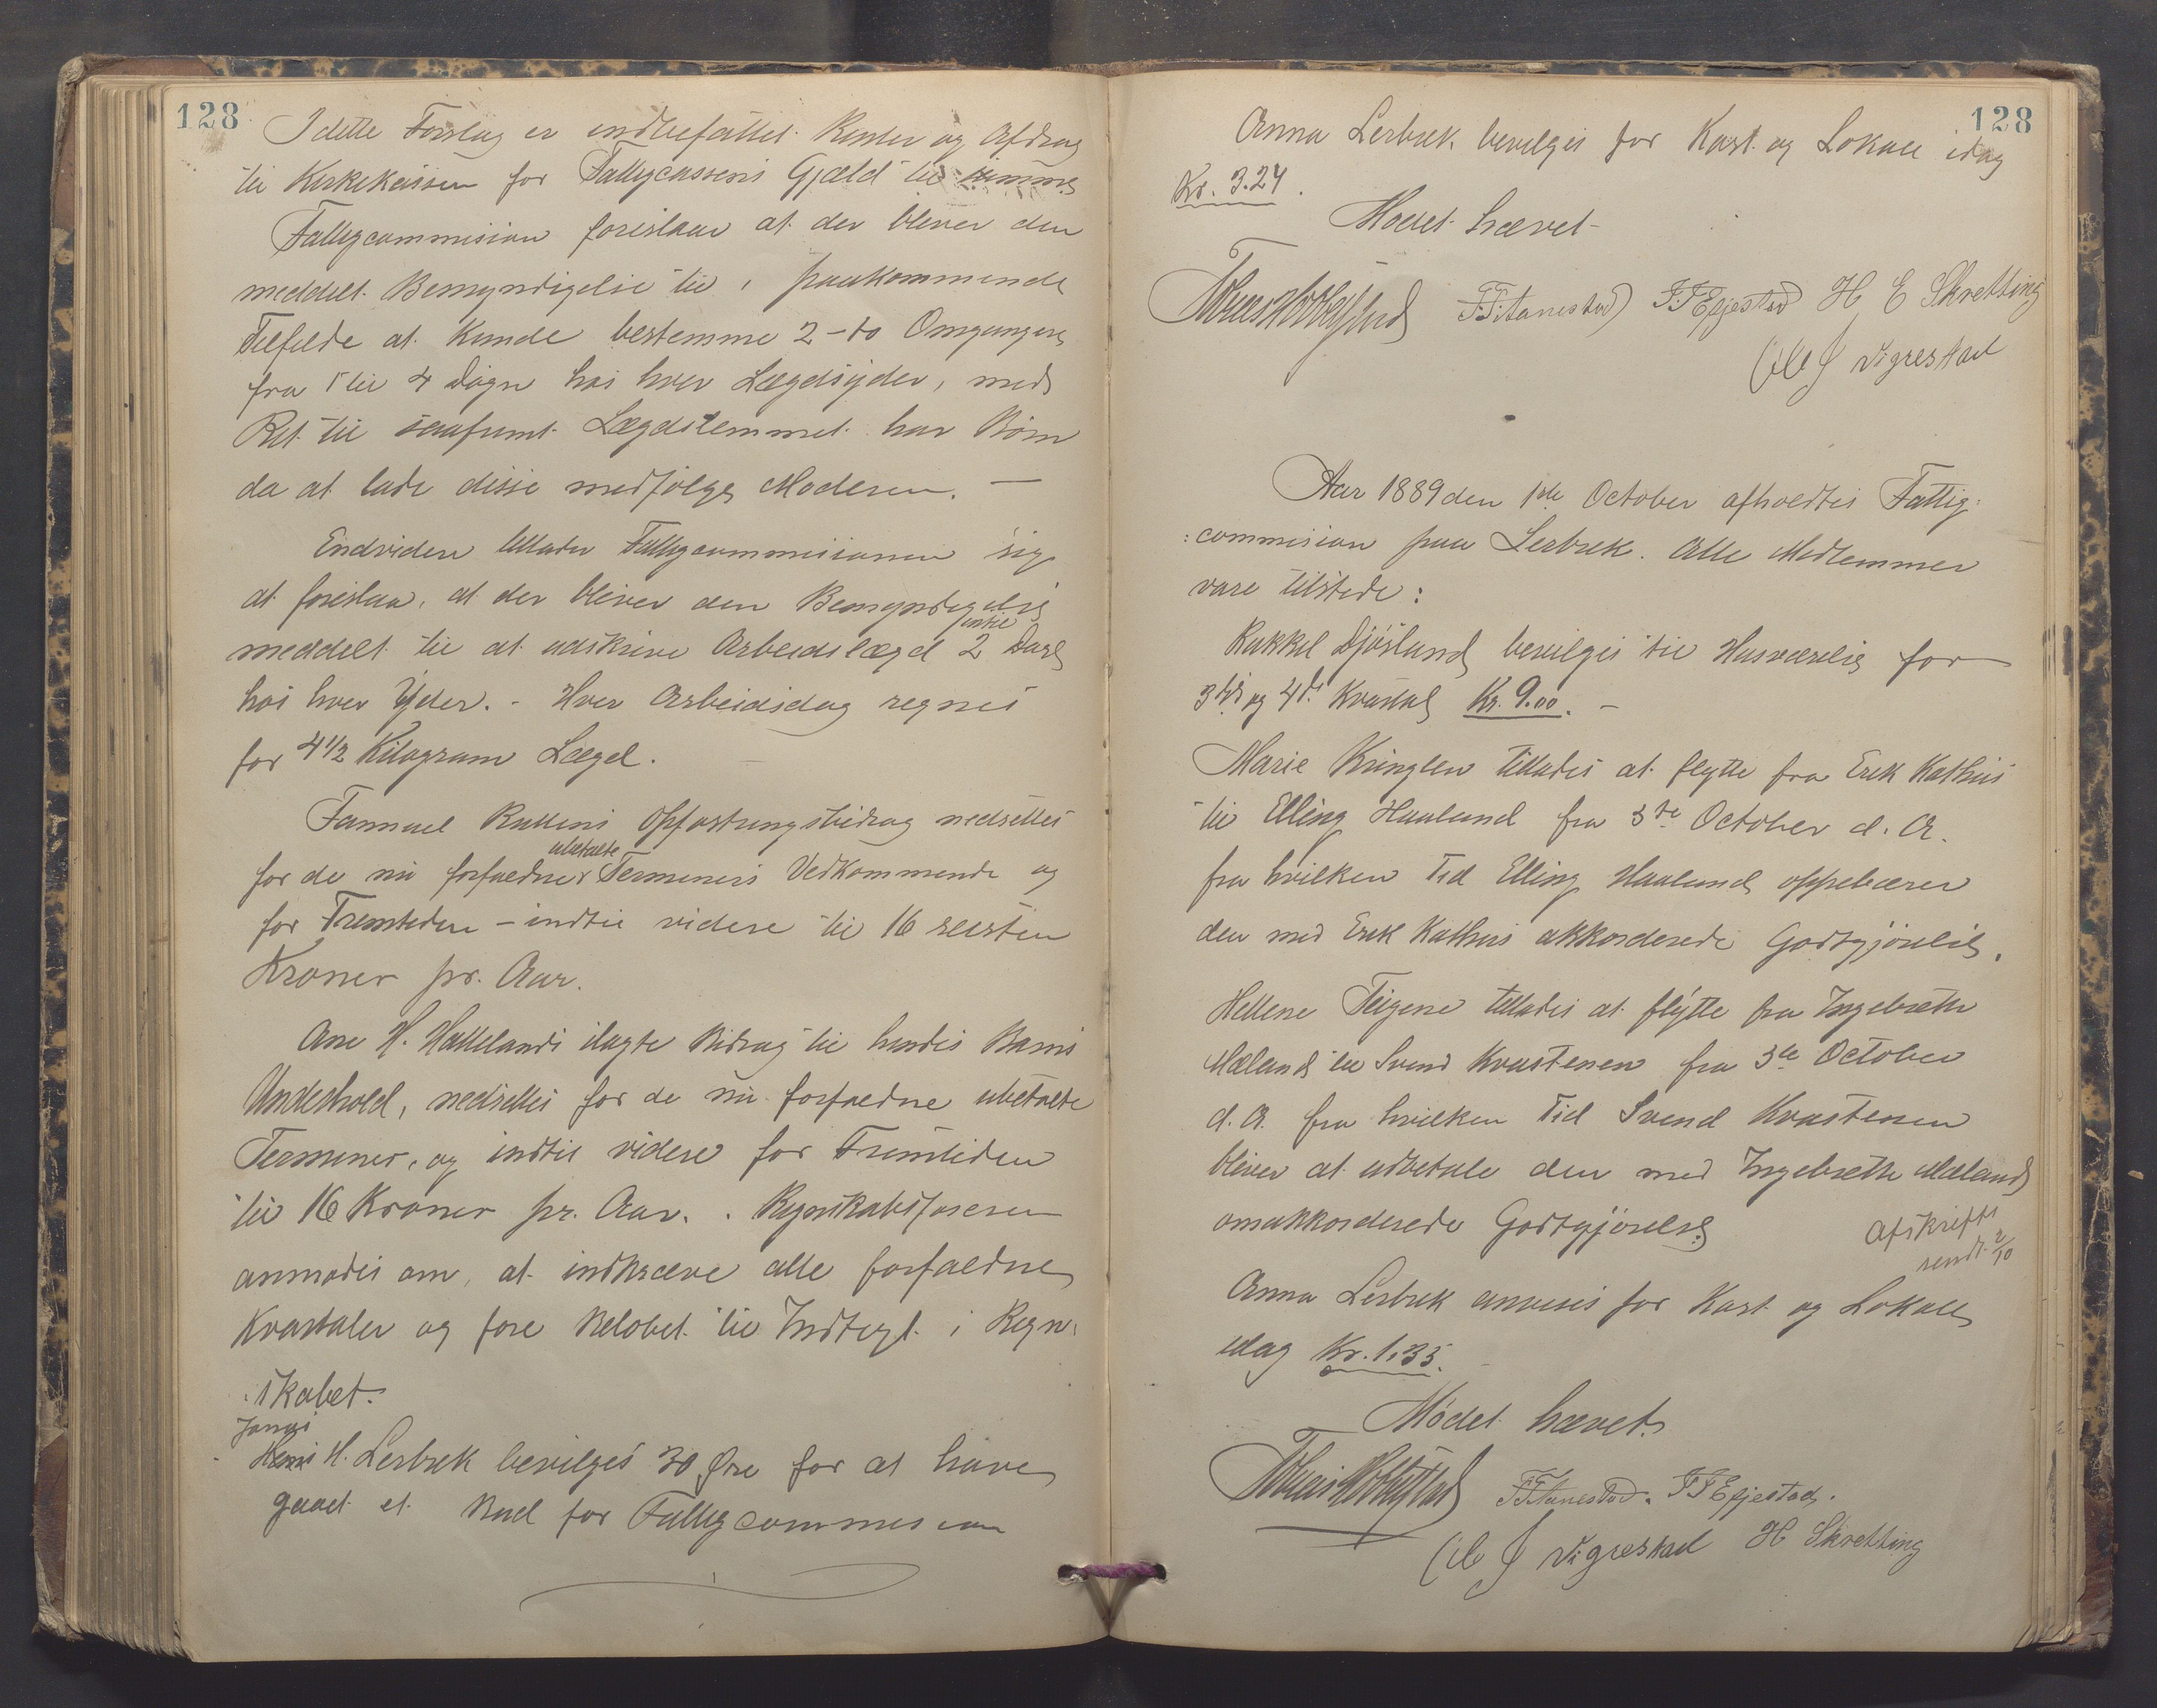 128
I dette Forslag er indbefattet Renter og Afdrag
til Kirkekassen for Fattigcassens Gjæld til samme
Fattigcommision foreslaar at der bliver den
meddelt Bemyndigelse til i paakommende
Tilfelde at kunde bestemme 2 - to Omgange
fra 1 til 4 Døgn hos hver Lægdsyder, med
Ret til saafremt Lægdslemmet har Børn
da at lade disse medfølge Moderen. —
Endvidere tillader Fattigcommissionen sig
at foreslaa, at der bliver den Bemyndigelse
meddelt til at udskrive Arbeidslægd indtil 2 Dage
hos hver Yder. - Hver Arbeidsdag regnes
for 4 1/2 Kilogram Lægd.
Opfostringsbidrag nedsættes
for de nu forfaldne ubetalte Terminers Vedkommende og
for Fremtiden - indtil videre til 16 seisten
Kroner pr. Aar.
Ane H. Hallelands ilagte Bidrag til hendes Barns
Underhold, nedsettes for de nu forfaldne ubetalte
Terminer, og indtil videre for Fremtiden
til 16 Kroner pr. Aar. . Regnskabsføreren
anmodes om, at indkræve alle forfaldne
Kvartaler og føre Beløbet til Indtegt i Regn:
:skabet.
Jonas
H. Lerbrek bevilges 30 Øre for at have
gaaet et Bud for Fattigcommision
128
Anna Lerbrek bevilges for Kost og Lokale idag
Kr. 3.24.
Mødet hævet
T. T. Aanestad T. T. Efjestad H E Skretting
Ole J Vigrestad
Aar 1889 den 1ste October afholdtes Fattig:
:commision paa Lerbrek. Alle Medlemmer
vare tilstede:
Rakkel Djösland bevilges til Husværelse for
3die og 4de Kvartal Kr. 9.00. -
Marie Kringlen tillades at flytte fra Erik Kathus
til Elling Haaland fra 3de October d. A.
fra hvilken Tid Elling Haaland oppebærer
den med Erik Kathus akkorderede Godtgjörelse.
Hellene Teigene tillades at flytte fra Ingebrethe
Mæland til Svend Kvastenen fra 3de October
d. A. fra hvilken Tid Svend Kvastenen
bliver at udbetale den med Ingebrethe Mæland
omakkorderede Godtgjörelse.
Afskrifts
sendt 2/10
Anna Lerbrek anvises for Kost og Lokale
idag Kr. 1,35.
Mödet hævet.
T. T. Aanestad. T T Efjestad.
Ole J Vigrestad H Skretting